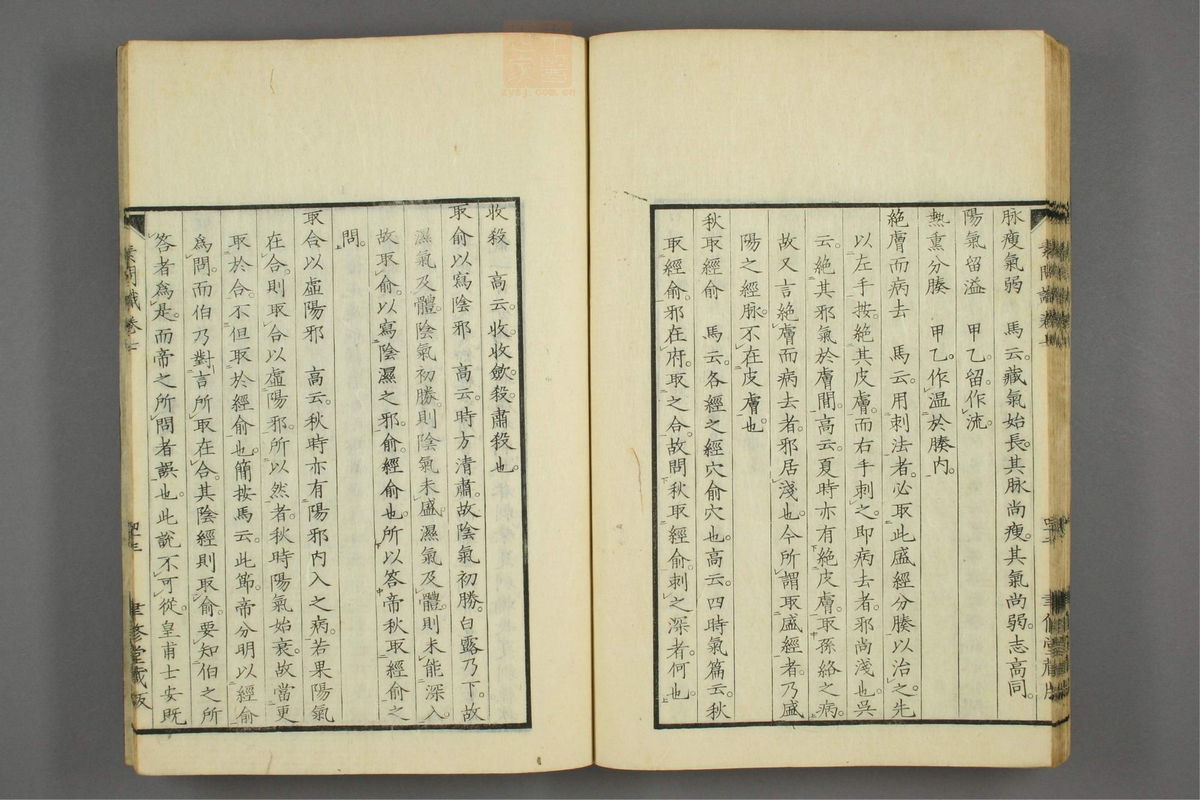 脉瘦氣弱　馬云。藏氣始長。其脉尚瘦。其氣尚弱。志高同。
陽氣留溢　甲乙。留作流。
熱熏分腠　甲乙。作温於腠内。
絶膚而病去　馬云。用刺法者。必取此盛經分腠以治之。先
以左手按絶其皮膚。而右手刺之。即病去者。邪尚淺也。吳
云。絶其邪氣於膚間。高云。夏時亦有絶皮膚。取孫絡之病。
故又言絶膚而病去者。邪居淺也。今所謂取盛經者。乃盛
陽之經脉。不在皮膚也。
秋取經俞　馬云。各經之經穴俞穴也。高云。四時氣篇云。秋
取經俞。邪在府。取之合。故問秋取經俞。刺之深者。何也。
收殺　高云。收。收斂。殺。肅殺也。
取俞以寫陰邪　高云。時方清肅。故陰氣初勝。白露乃下。故
濕氣及體。陰氣初勝。則陰氣未盛。濕氣及體。則未能深入。
故取俞。以寫陰濕之邪。俞。經俞也。所以答帝秋取經俞之
問。
取合以虛陽邪　高云。秋時亦有陽邪内入之病。若果陽氣
在合。則取合以虛陽邪。所以然者。秋時陽氣始衰。故當更
取於合。不但取於經俞也。簡按馬云。此節帝分明以經俞
爲問。而伯乃對言所取在合。其陰經則取俞。要知伯之所
答者爲是。而帝之所問者誤也。此說不可從。皇甫士安既
素問識卷七
四十三
聿修堂藏版